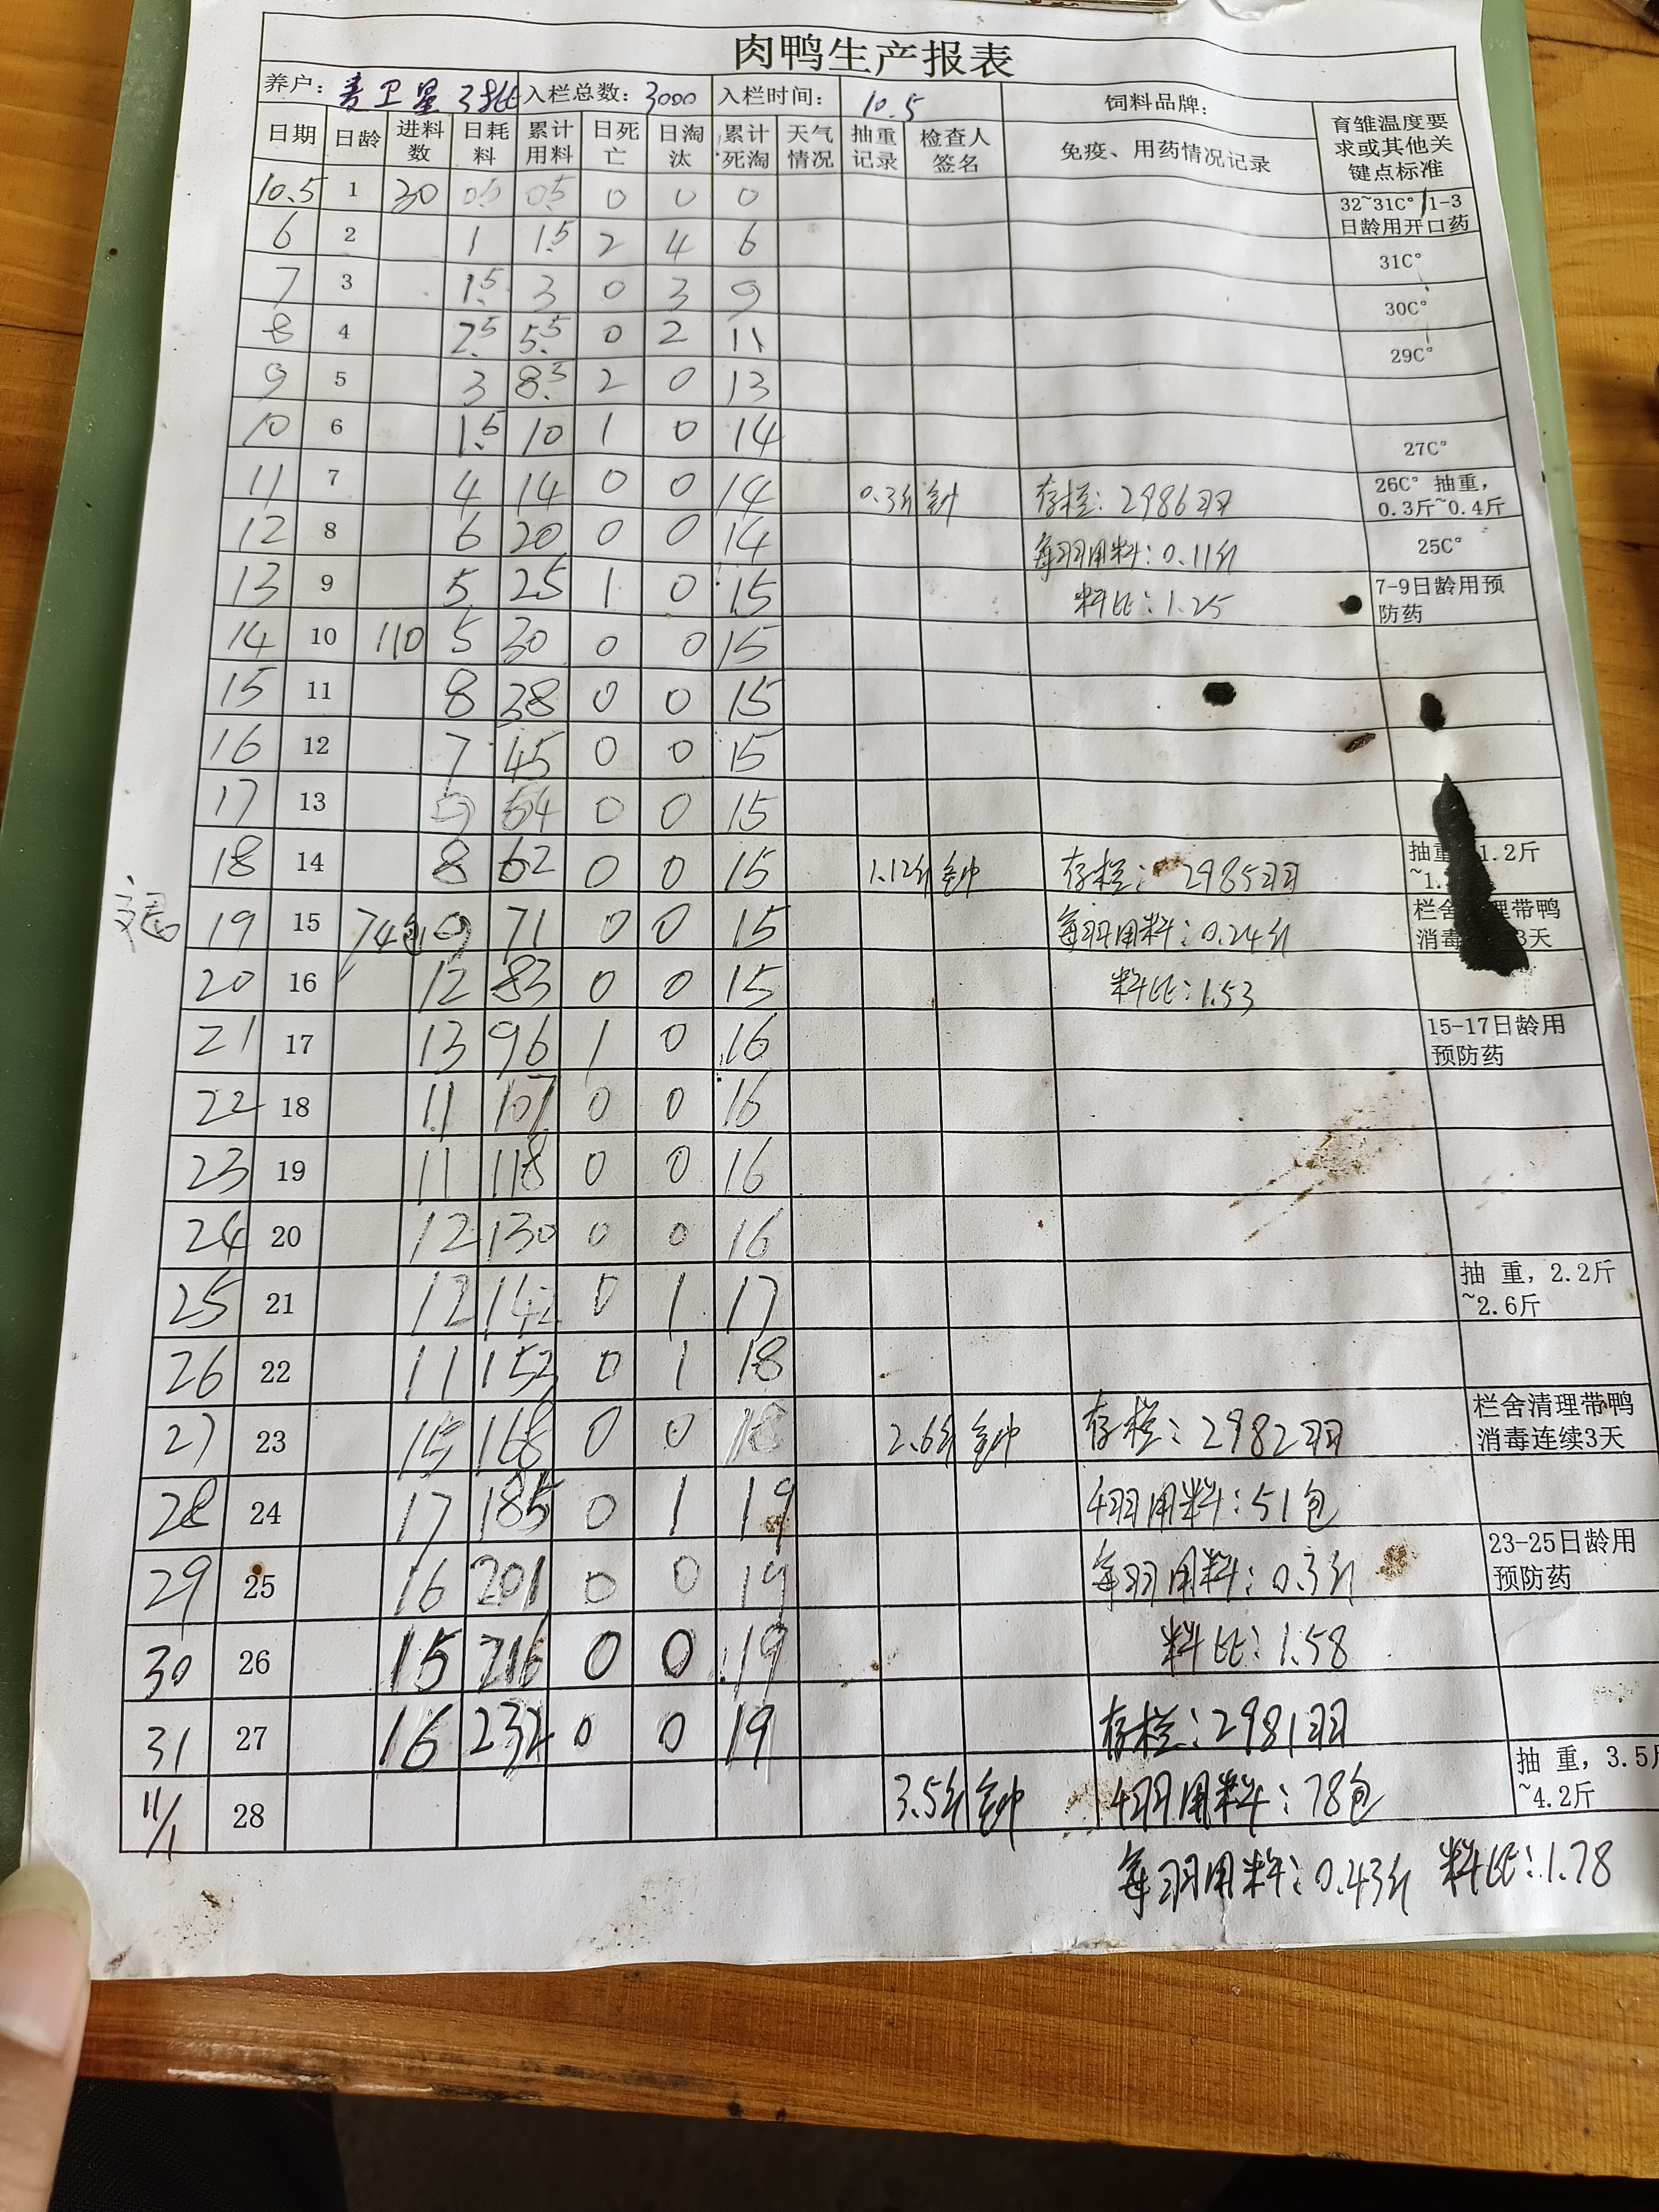 肉鸭生产报表
养户: 麦卫星 3批 入栏总数: 3000 入栏时间: 10.5 饲料品牌:
日期 日龄 进料数 日耗料 累计用料 日死亡 日淘汰 累计死淘 天气情况 抽重记录 检查人签名 免疫、用药情况记录 育雏温度要求或其他关键点标准
10.5 1 30 0.5 0.5 0 0 0 32~31C° 1-3日龄用开口药
6 2 1 1.5 2 4 6 31C°
7 3 1.5 3 0 3 9 30C°
8 4 2.5 5.5 0 2 11 29C°
9 5 3 8.5 2 0 13
10 6 1.5 10 1 0 14 27C°
11 7 4 14 0 0 14 0.3斤 存栏: 2986羽 26C° 抽重, 0.3斤~0.4斤
12 8 6 20 0 0 14 每羽用料: 0.11斤 25C°
13 9 5 25 1 0 15 料比: 1.25 7-9日龄用预防药
14 10 110 5 30 0 0 15
15 11 8 38 0 0 15
16 12 7 45 0 0 15
17 13 9 54 0 0 15
18 14 8 62 0 0 15 1.12斤 存栏: 2985羽 抽重 1.2斤~1.
19 15 74包 9 71 0 0 15 每羽用料: 0.24斤 栏舍 理带鸭消毒 3天
20 16 12 83 0 0 15 料比: 1.53
21 17 13 96 1 0 16 15-17日龄用预防药
22 18 11 107 0 0 16
23 19 11 118 0 0 16
24 20 12 130 0 0 16
25 21 12 142 0 1 17 抽 重, 2.2斤~2.6斤
26 22 11 153 0 1 18
27 23 15 168 0 0 18 2.6斤 存栏: 2982羽 栏舍清理带鸭消毒连续3天
28 24 17 185 0 1 19 千羽用料: 51包
29 25 16 201 0 0 19 每羽用料: 0.3斤 23-25日龄用预防药
30 26 15 216 0 0 19 料比: 1.58
31 27 16 232 0 0 19 存栏: 2981羽
11/1 28 3.5斤 千羽用料: 78包 抽 重, 3.5斤~4.2斤
每羽用料: 0.43斤 料比: 1.78